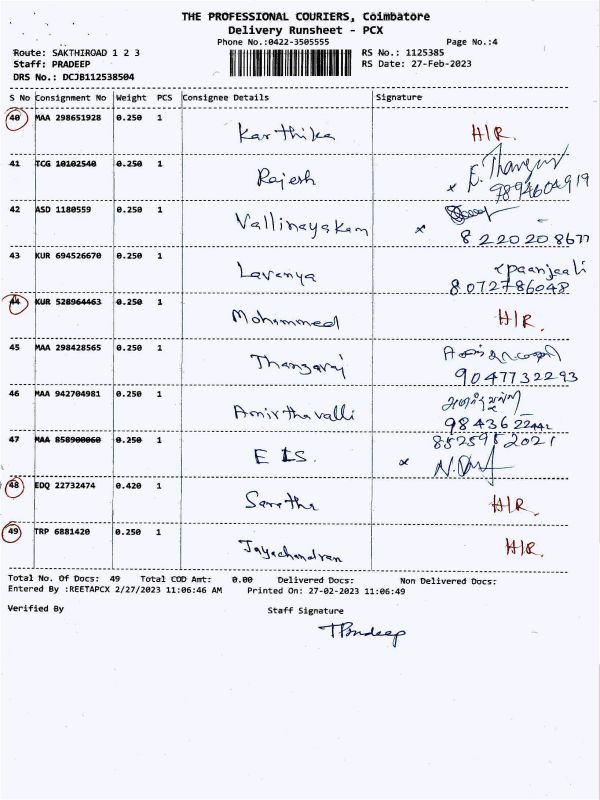 THE PROFESSIONAL COURIERS, Coimbatore
Delivery Runsheet - PCX
Phone No.:0422-3505555 Page No.:4
Route: SAKTHIROAD 1 2 3 RS No.: 1125385
Staff: PRADEEP RS Date: 27-Feb-2023
DRS No.: DCJB112538504
S No Consignment No Weight PCS Consignee Details Signature
40 MAA 298651928 0.250 1
Karthika H/R.
41 TCG 10102540 0.250 1
Rajesh x E. Thangam
9894604919
42 ASD 1180559 0.250 1
Vallinayakam x
8220208677
43 KUR 694526670 0.250 1
Lavanya
8072786048
44 KUR 528964463 0.250 1
Mohammed H/R.
45 MAA 298428565 0.250 1
Thangaraj
9047732293
46 MAA 942704981 0.250 1
Amirthavalli
98436 22442
47 MAA 858900060 0.250 1 8825982021
E IS. x
48 EDQ 22732474 0.420 1
Saratha H/R.
49 TRP 6881420 0.250 1
Jayachandran H/R.
Total No. Of Docs: 49 Total COD Amt: 0.00 Delivered Docs: Non Delivered Docs:
Entered By :REETAPCX 2/27/2023 11:06:46 AM Printed On: 27-02-2023 11:06:49
Verified By Staff Signature
TPradeep